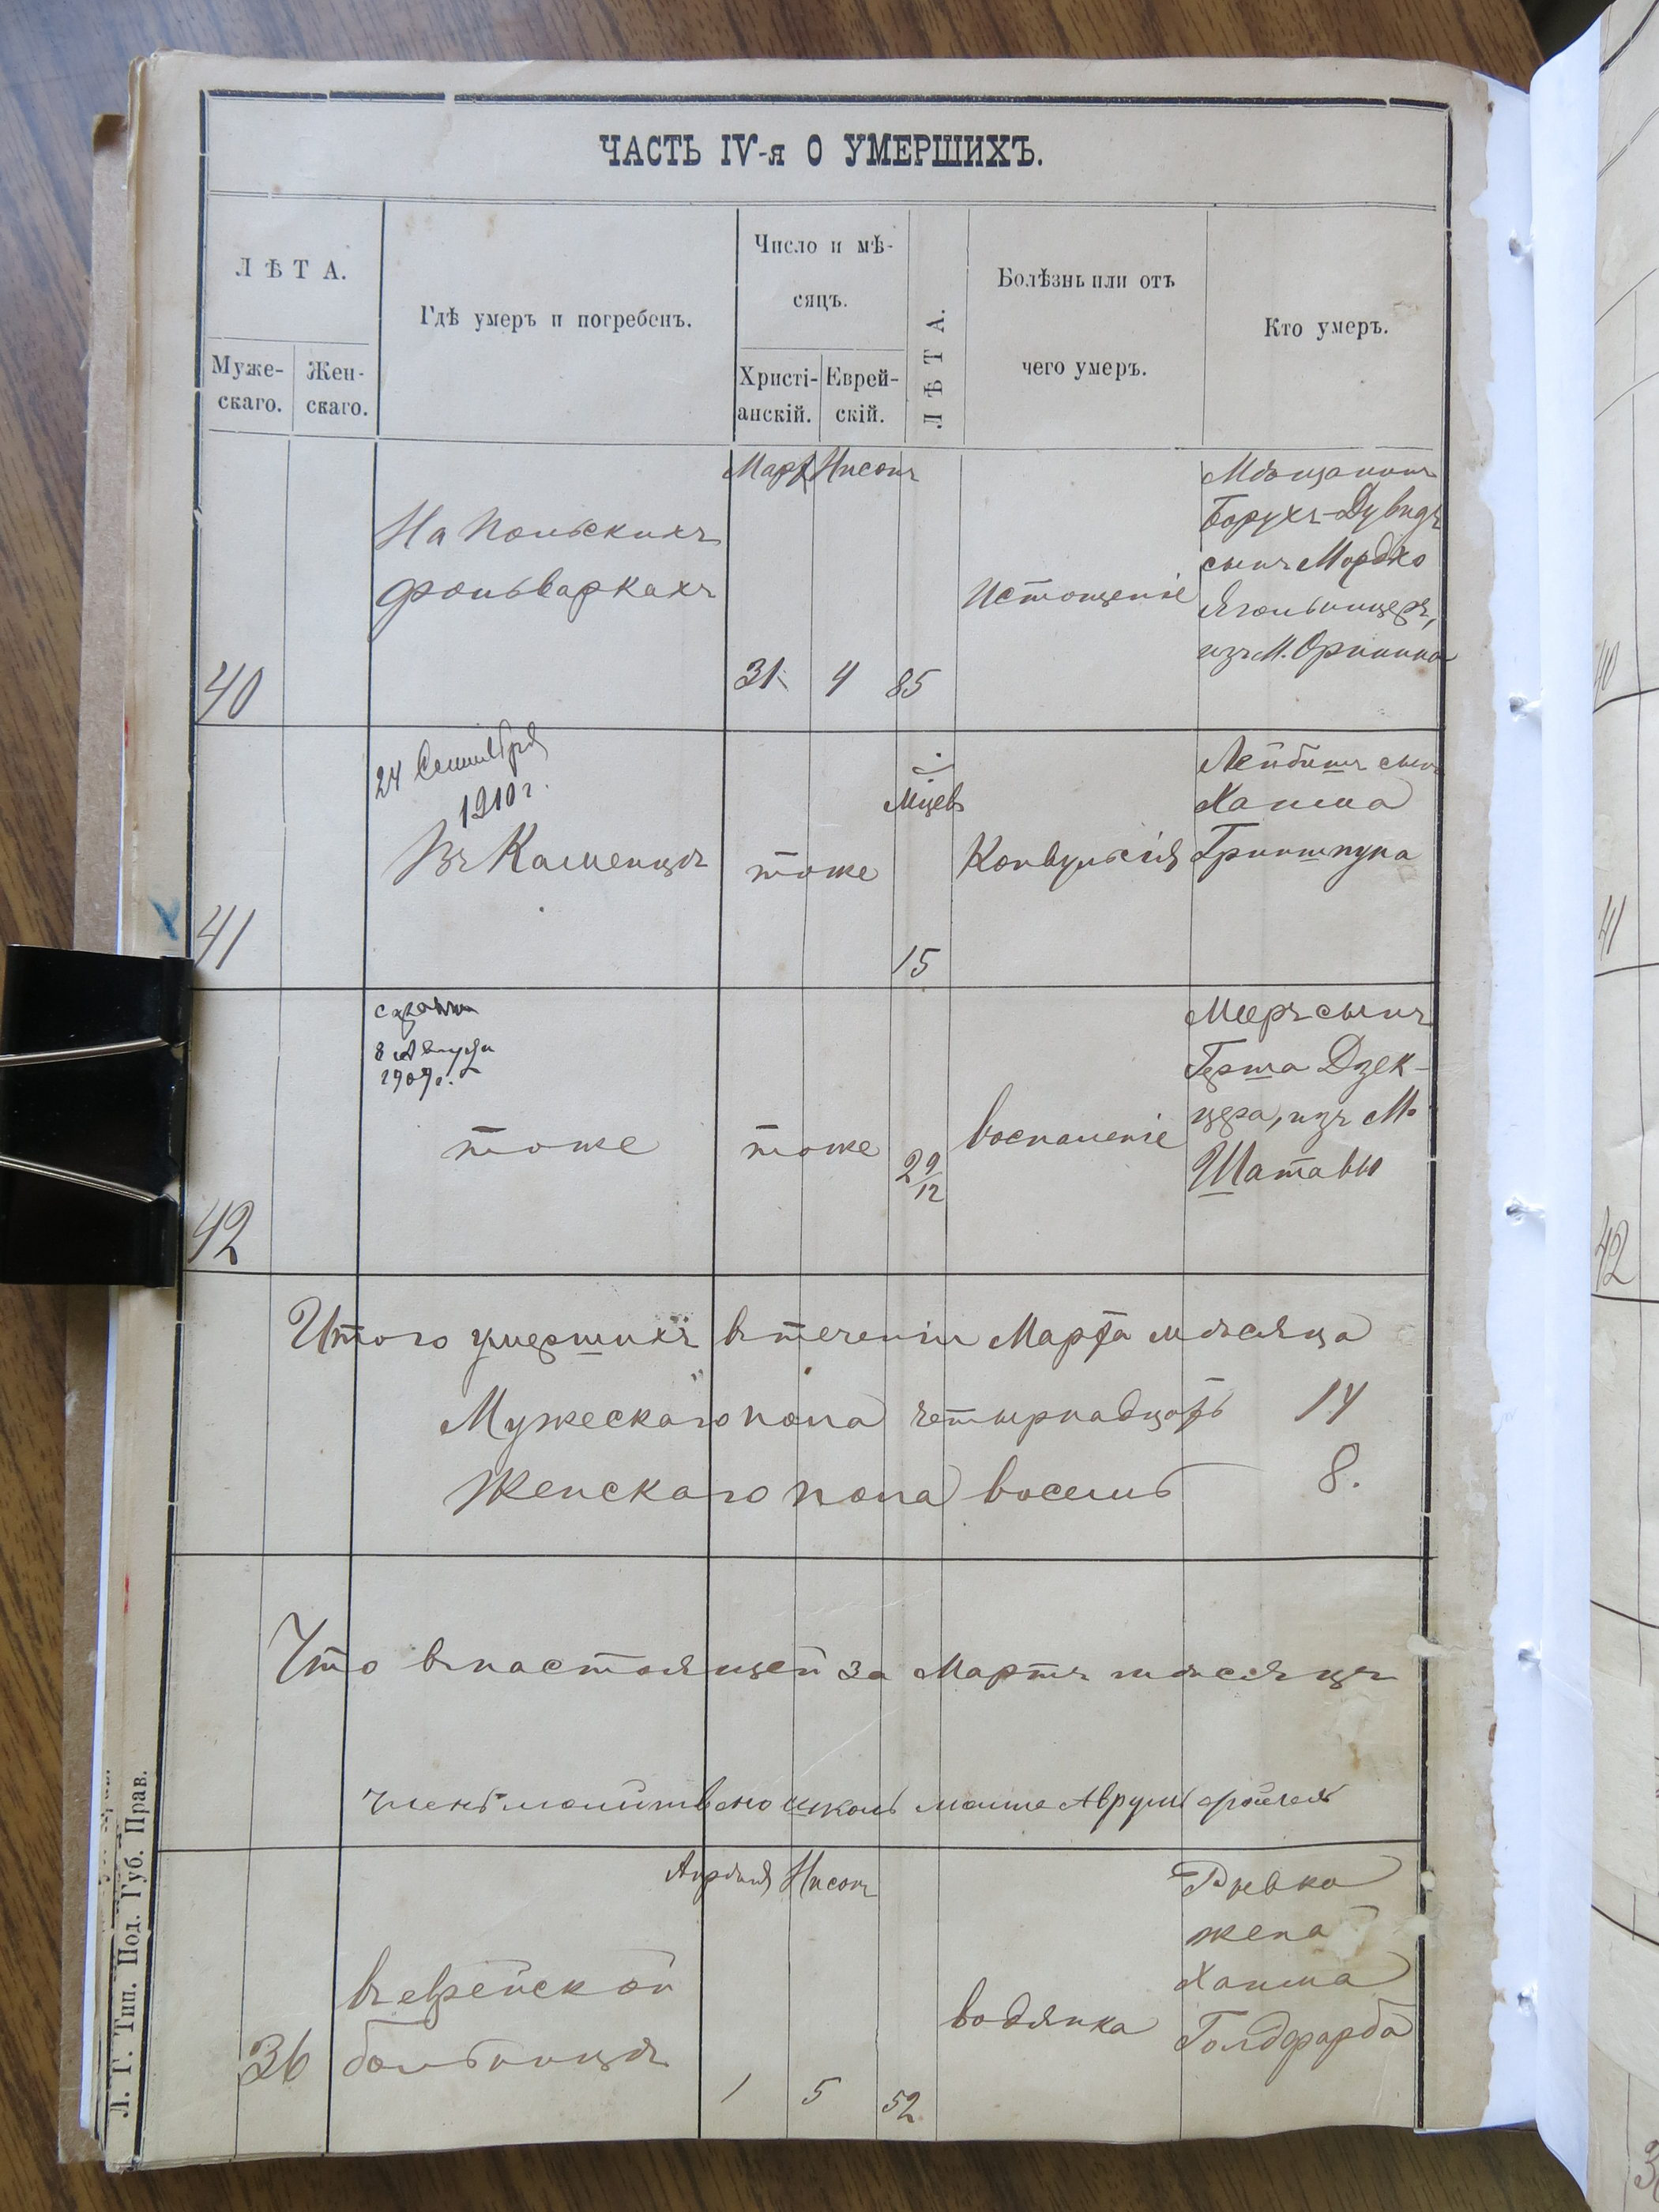 ЧАСТЬ IV-я О УМЕРШИХЪ.
ЛѢТА.
Муже-
скаго.
Жен-
скаго.
Гдѣ умеръ и погребенъ.
Число и мѣ-
сяцъ.
Христі-
анскій.
Еврей-
скій.
ЛѢТА.
Болѣзнь или отъ
чего умеръ.
Кто умеръ.
40
На Польскихъ
фольваркахъ
Мартъ
31
Нисонъ
4
85
Истощеніе
Мѣщанинъ
Борухъ-Дувидъ
сынъ Мордко
Ягольницеръ,
изъ М. Оринина
41
24 Сентября
1910 г.
Въ Каменцѣ
тоже
Мцевъ
15
Конвульсія
Лейбишъ сынъ
Хаима
Гринштука
42
8 Августа
1909 г.
тоже
тоже
2 9/12
Воспаленіе
Мееръ сынъ
Герша Дзек-
цера, изъ М.
Шатавы
Итого умершихъ въ теченіи Марта мѣсяца
Мужескаго пола четырнадцать 14
Женскаго пола восемь 8.
Что въ настоящей за Мартъ мѣсяцъ
36
въ еврейской
больницѣ
Апрѣля
1
Нисонъ
5
52
водянка
Ривка
жена
Хаима
Голдфарба
Л. Г. Тип. Под. Губ. Прав.
40
41
42